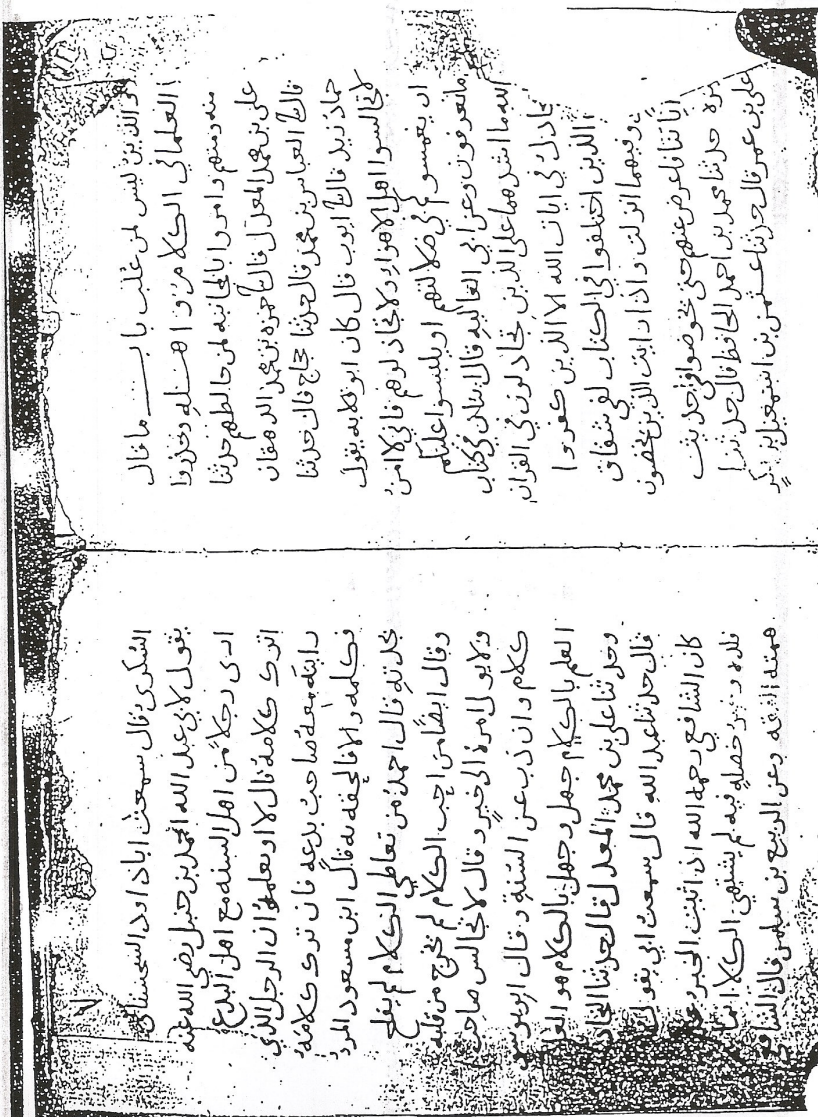 والذين ليس لمن غلب باب ما قال
العلما في الكلام و اهله وحذروا
منه ومنهم وامروا بالمجانبه لمن خالطهم حدثنا
على بن محمد المعدل قال حمزه بن محمد الدهقان
قال العباس بن محمد قال حدثنا حجاج قال حدثنا
حماد زيد قال ايوب قال كان ابو قلابه يقول
لا تجالسوا اهل الاهوا ولا تجادلوهم فاني لا امن
ان يغمسوكم في ضلالتهم او يلبسوا عليكم
ما تعرفون وعن ابي العاليه قال ايتان في كتاب
الله ما اشدهما على الذين يجادلون في القران
يجادل في ايات الله الا الذين كفروا
الذين اختلفوا في الكتاب لفي شقاق
وفيهما انزلت واذا رايت الذين يخوضون
اياتنا فاعرض عنهم حتى يخوضوا في حديث
غيره حدثنا محمد بن احمد الحافظ قال حدثنا
على بن عمر قال حدثنا عثمن بن اسمعيل بن بكر
السكرى قال سمعت ابا داود السجستاني
يقول لابي عبد الله احمد بن حنبل رضي الله عنه
ارى رجلا من اهل السنه مع اهل البدع
اترك كلامه قال لا او تعلمه ان الرجل الذي
رايته معه صاحب بدعه فان ترك كلامه
فكلمه والا فالحقه به قال ابن مسعود المرء
بخدنه قال احمد من تعاطي الكلام لم يفلح
وقال ايضا من احب الكلام لم يخرج من قلبه
ولا يول امره الى خير وقال لا تجالس صاحب
كلام وان ذب عن السنه وقال ابو يوسف
العلم بالكلام جهل وجهل بالكلام هو العلم
وحدثنا على بن محمد المعدل قال حدثنا النجاد
قال حدثنا عبد الله قال سمعت ابي يقول
كان الشافعي رحمه الله اذا اثبت الخبر
قلده وخير خصله فيه لم يشتهي الكلام انما
همته الفقه وعن الربيع بن سليمن قال الشافعي